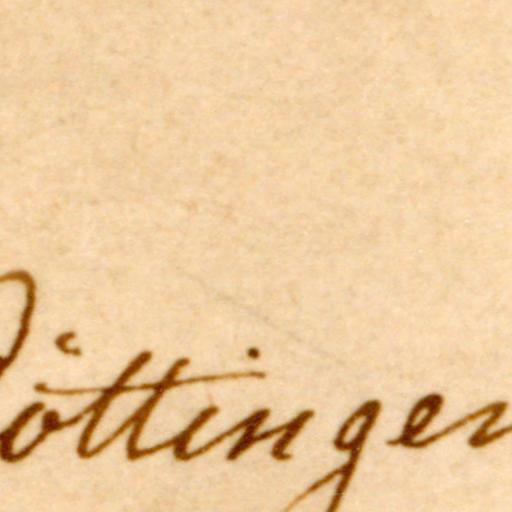 Göttingen